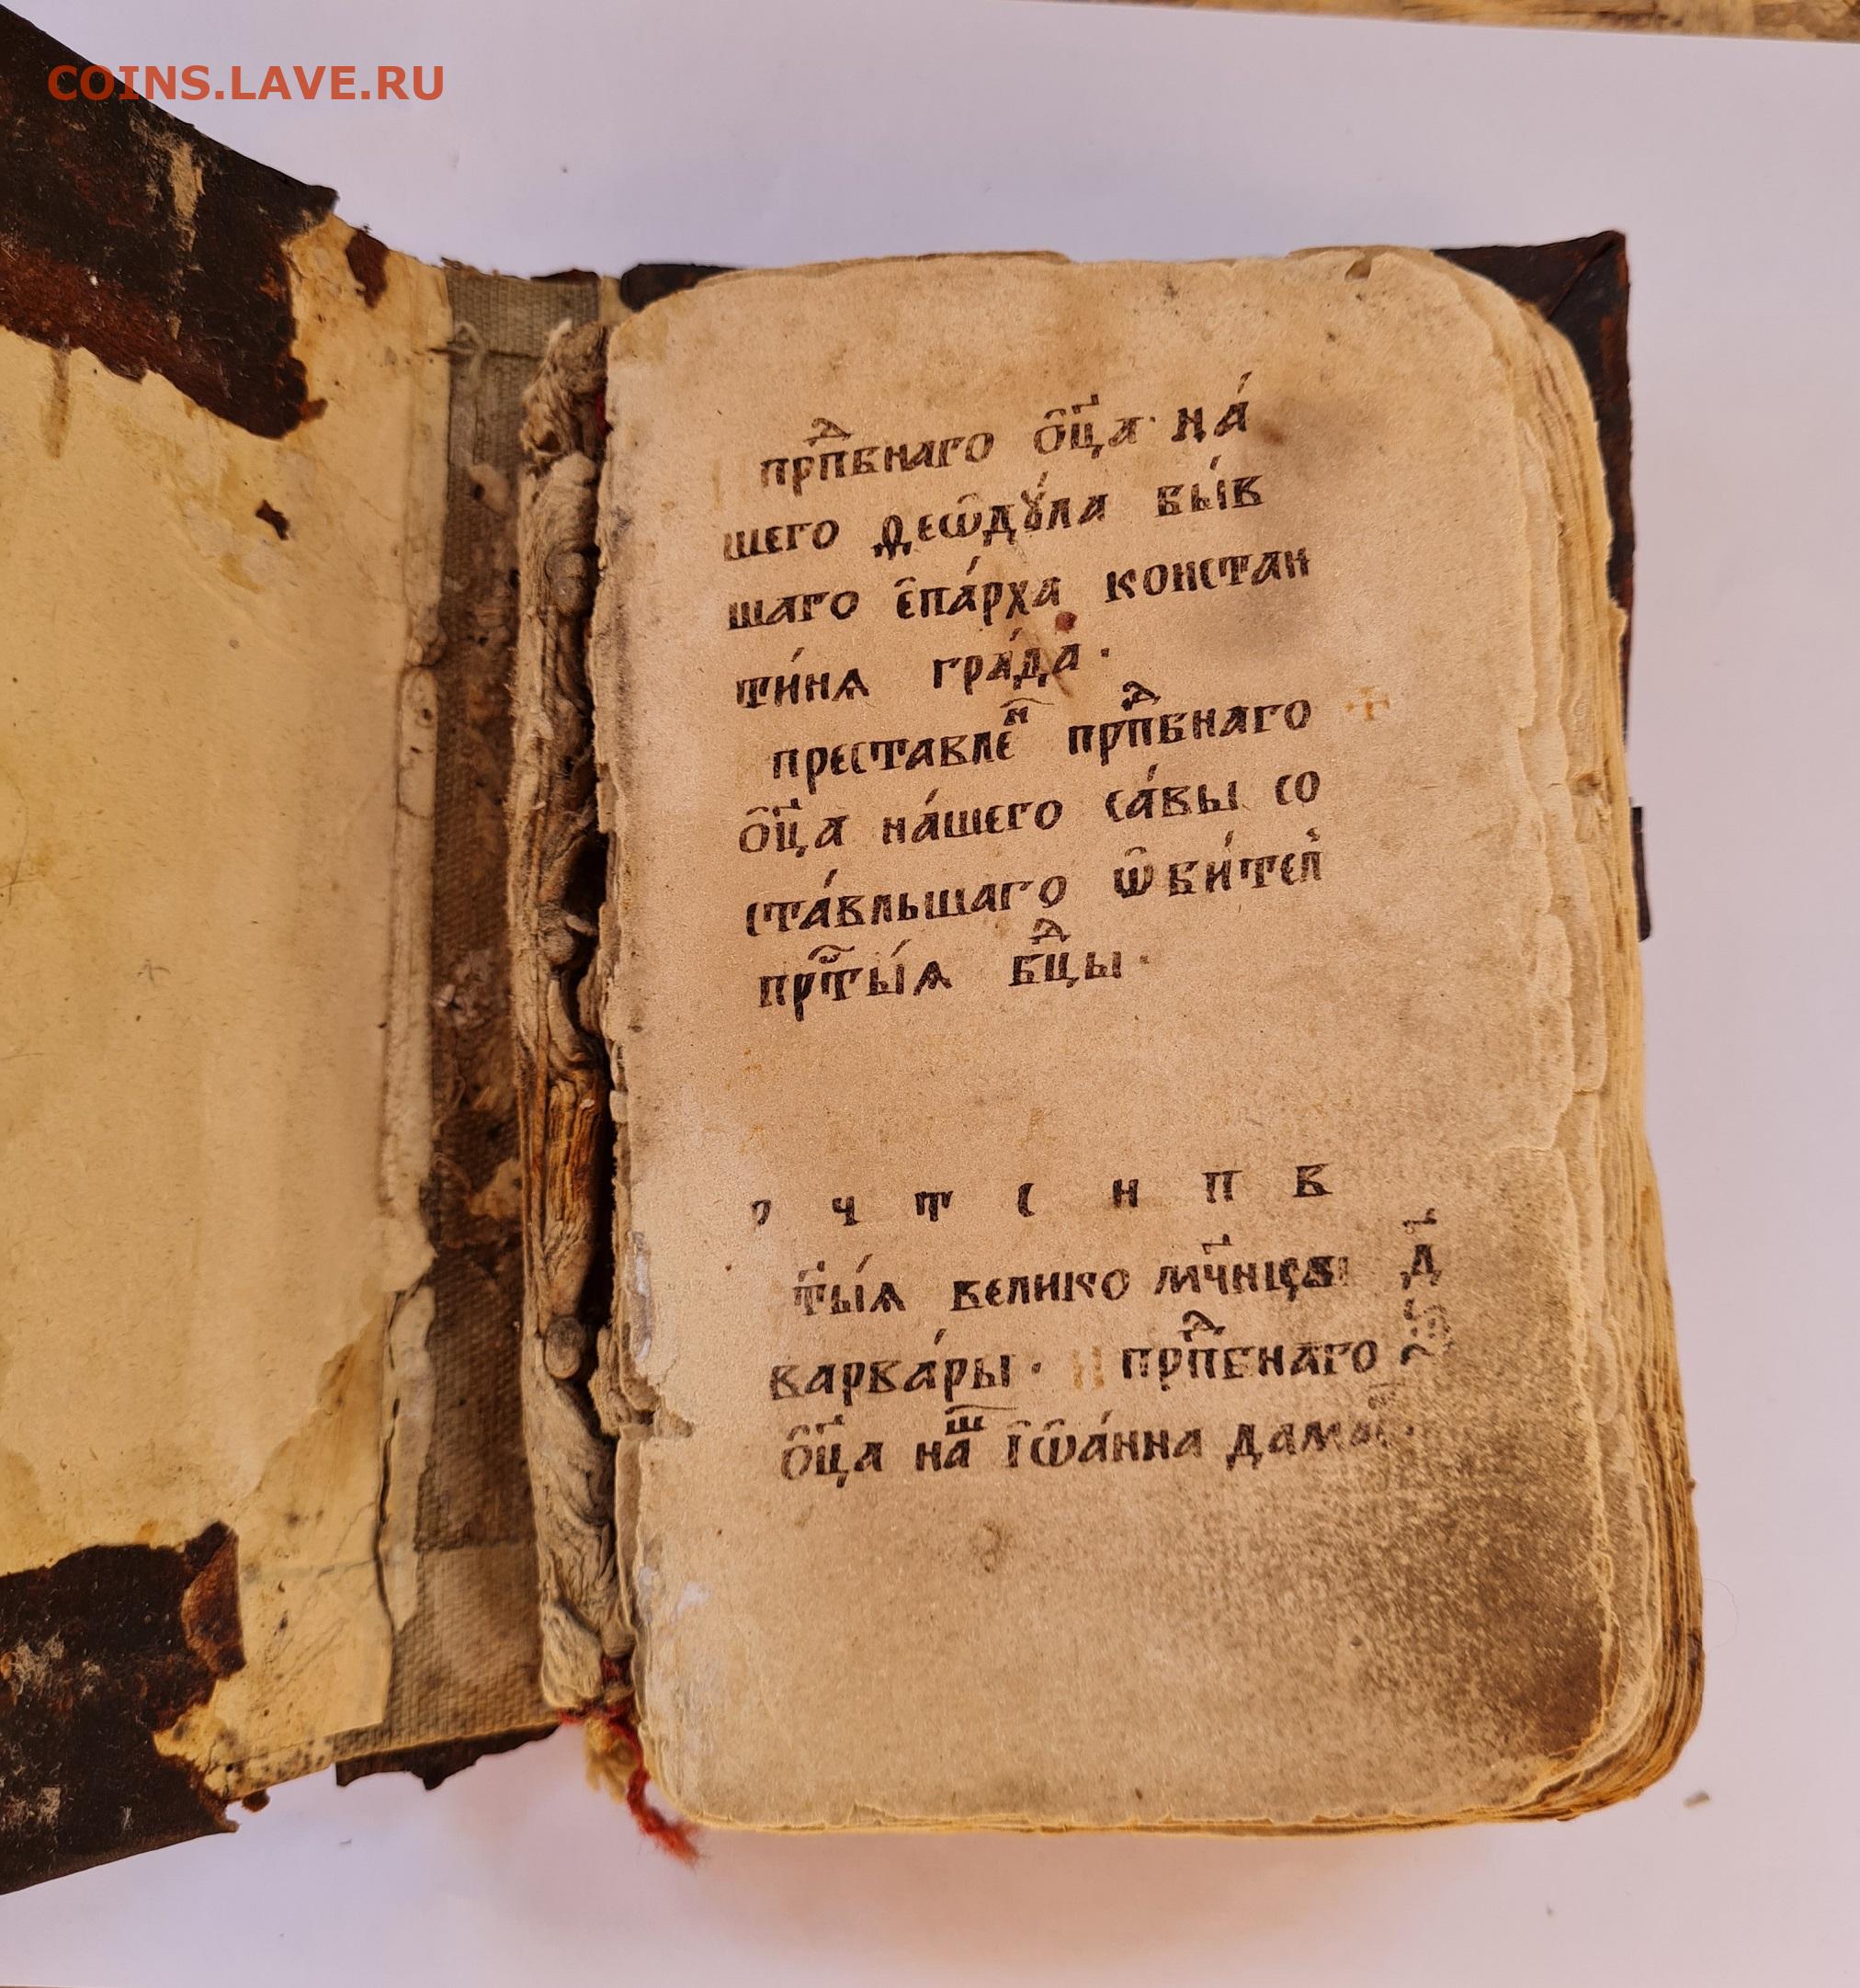 COINS.LAVE.RU
прпⷣбнаго ѻ҆ц҃а на́
шего ѳеѡ҆дꙋ́ла бы́в
шаго є҆па́рха констан
ти́нѧ гра́да.
преставлеⷩ҇ прпⷣбнаго
ѻ҆ц҃а на́шего са́вы со
ста́вльшаго ѡ҆би́тел̀
прⷭ҇ты́ѧ бцⷣы.
ч т с н п в
т҃ы́ѧ велико мч҃ницы д҃
варва́ры. прпⷣбнаго
ѻ҆ц҃а наⷲ҇ і҆ѡ҆а́нна дамаⷭ҇.